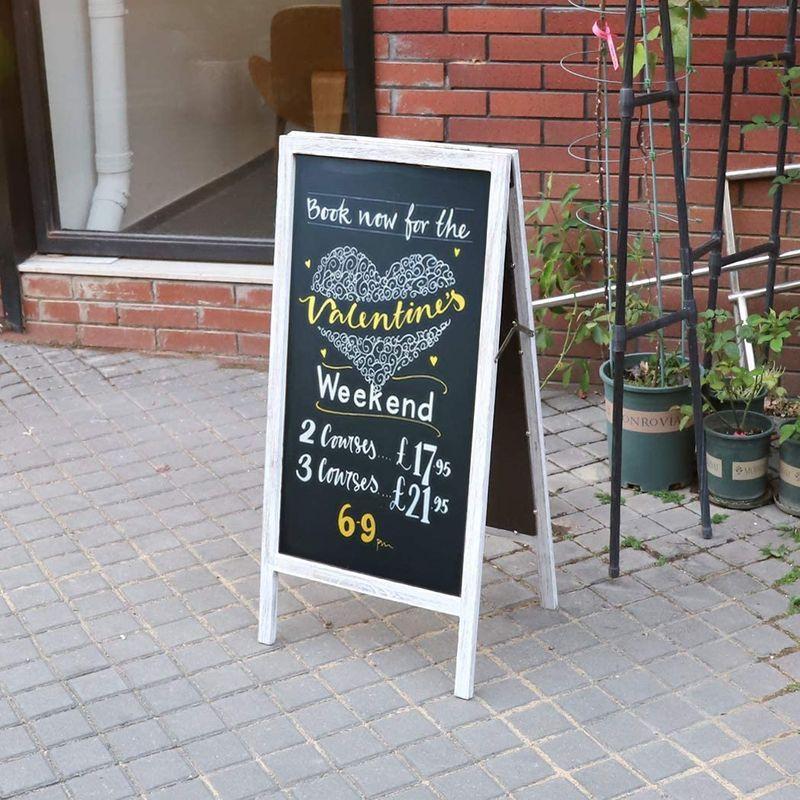 Book now for the
Valentine's
Weekend
2 Courses.... £17.95
3 Courses... £21.95
6-9 pm
MONROVIA